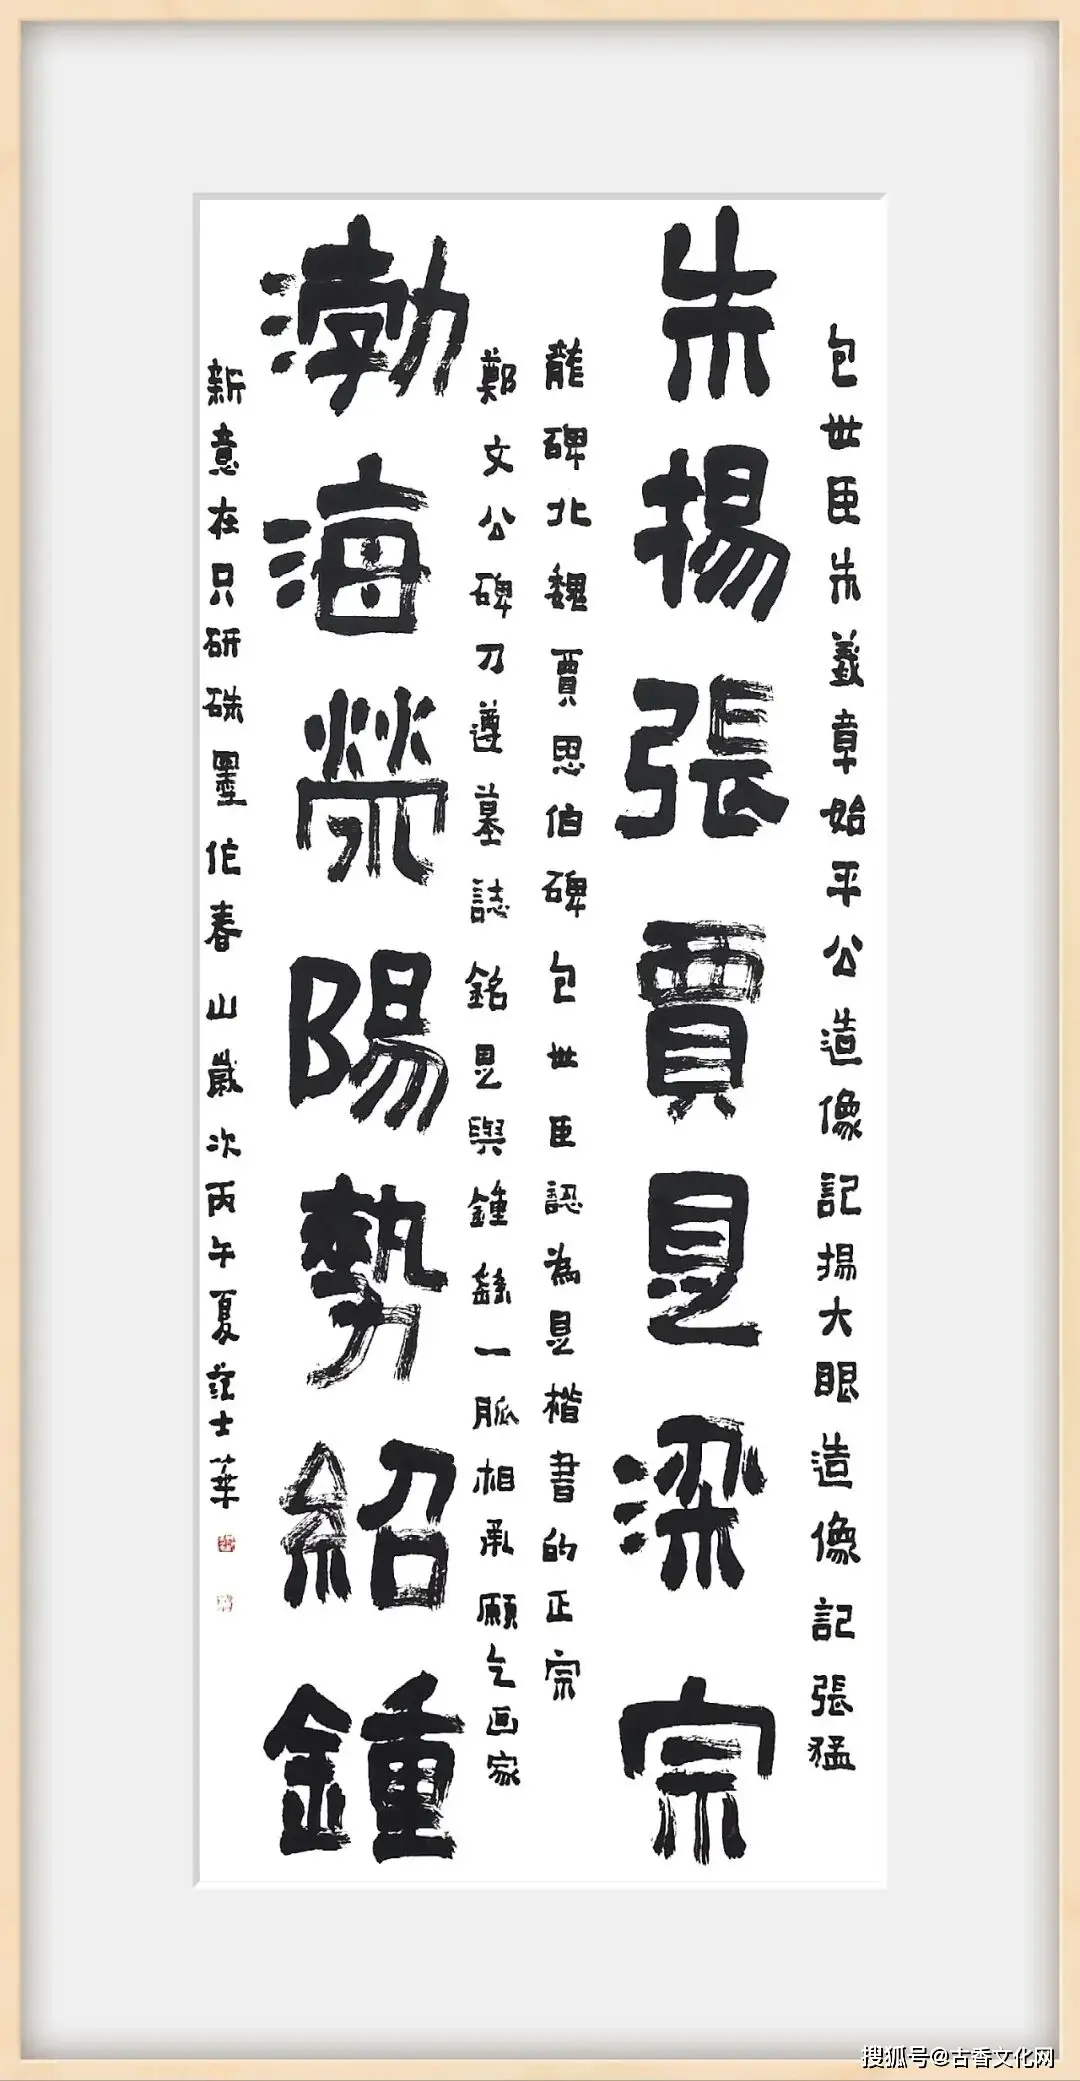 包世臣朱義章始平公造像記揚大眼造像記張猛
朱揚張賈是梁宗
龍碑北魏賈思伯碑包世臣認為是楷書的正宗
鄭文公碑刁遵墓誌銘是與鍾繇一脈相承願乞画家
渤海滎陽勢紹鍾
新意在只研硃墨作春山歲次丙午夏范士華
搜狐号@古香文化网